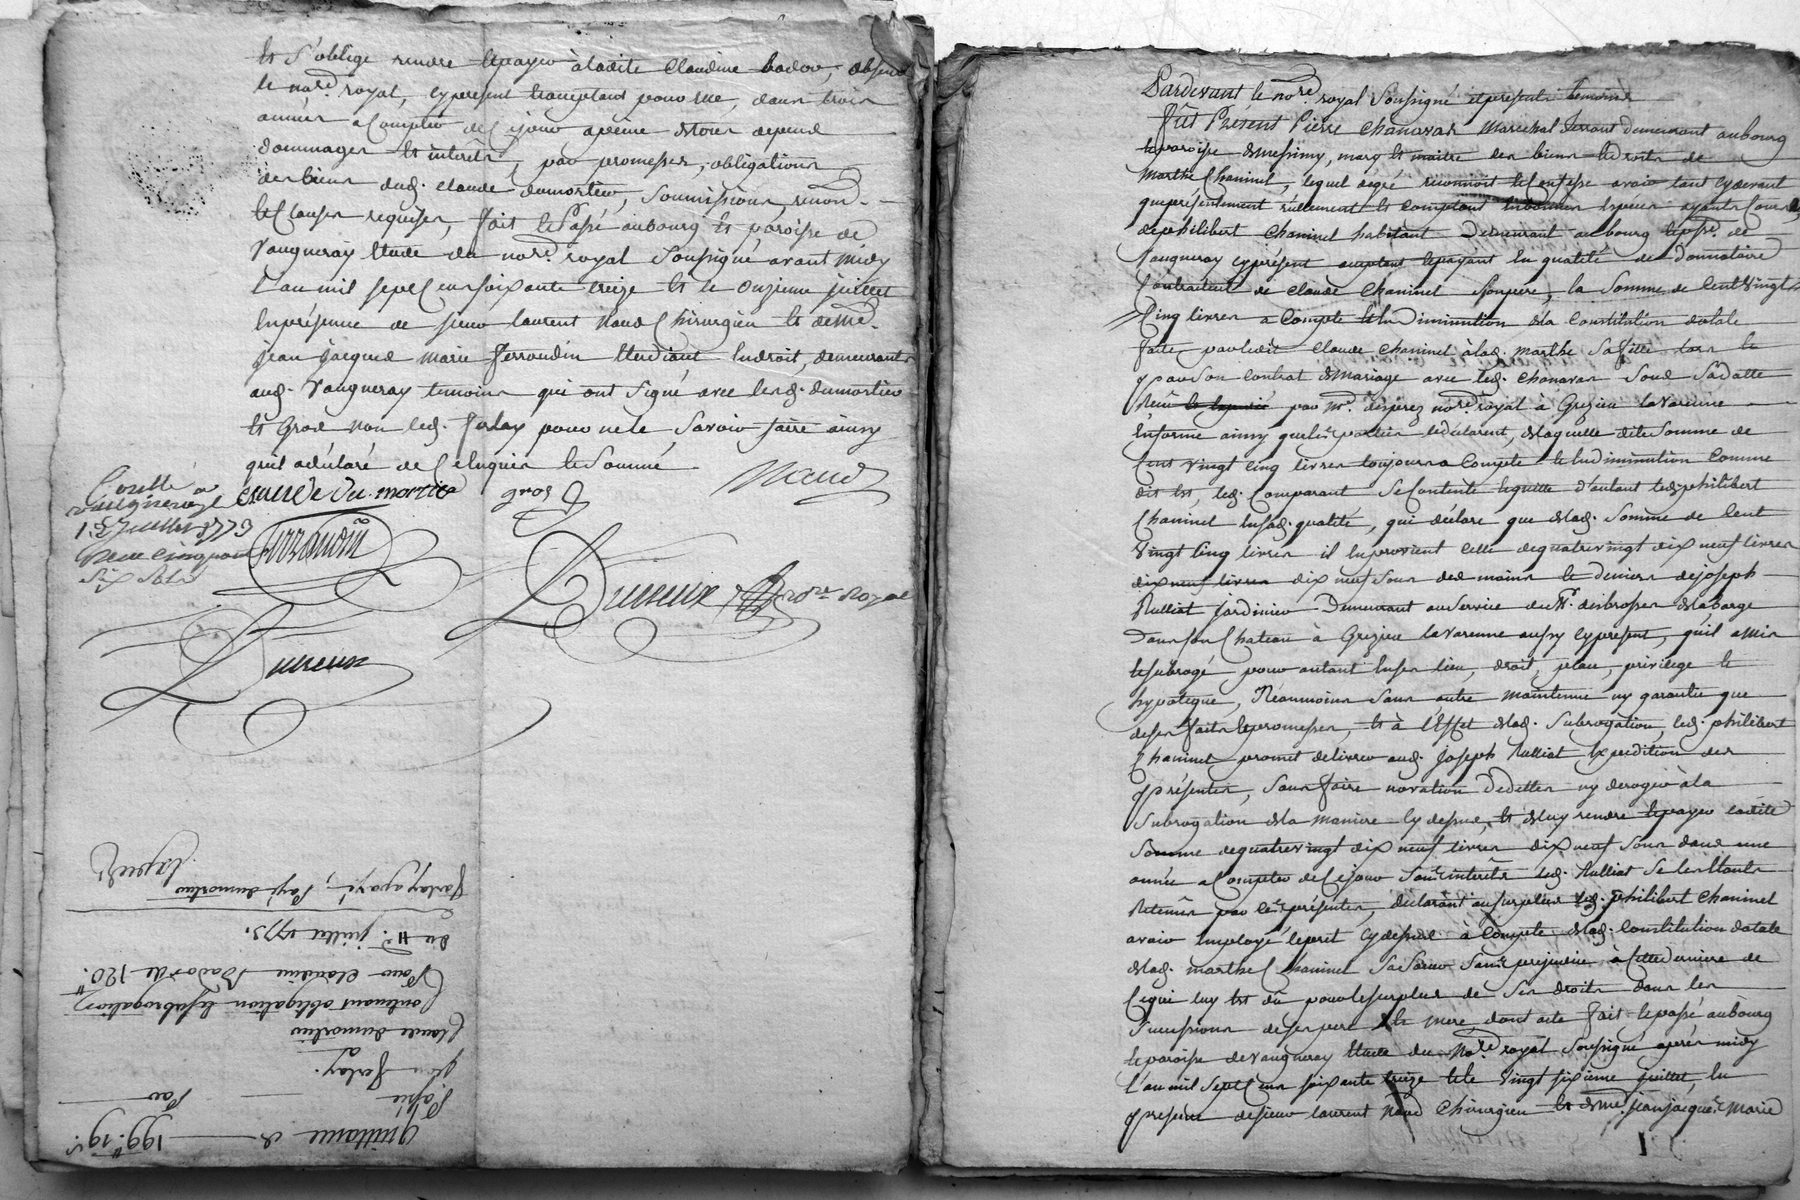 et s'oblige rendre et payer à ladite Claudine Badou, absente
le no.re royal, cy present acceptant pour elle, dans trois
années a Compter de Ce jour a peine de tous depens
dommages et interets, par promesses, obligations
des biens dud. Claude dumortier, Soumissions, renon.
et Clauses requises, fait et Passé au bourg et paroisse de
Vaugneray Etude du no.re royal Soussigné avant midy
L'an mil sept Cens soixante treize et le onzieme juillet
En présence de sieur laurent Naud Chirurgien et de Me.
jean jacques marie ferroudin Etudiant En droit, demeurants
aud. Vaugneray temoins qui ont signé avec lesd. dumortier
et Gros non led. ferlay pour ne le Savoir faire ainsy
qu'il a déclaré de Ce Enquis et Sommé
Naud
claude du mortier gros
ferroudin
Controllé a
Vaugneray le
15 Juillet 1773
six Sols
no.re Royal
Quittance de 199.tt 19.s
Passée Par
jean ferlay.
a
Claude dumortier
Contenant obligation et subrogation
Pour Claudine Badou de 120.tt
du 11.e juillet 1773.
ferlay a payé, Payé dumortier
Expedié
Pardevant le no.re royal Soussigné et presents temoins
fut Present Pierre Chanavas Marechal ferrant demeurant au bourg
et paroisse de messimy, mary et maitre des biens et droits de
Marthe Chaninel, lequel de gré reconnoit et Confesse avoir tant cy devant
que présentement réellement et Comptant En bonnes Especes ayants Cours,
de philibert Chaninel habitant Demeurant au bourg et psse. de
Vaugneray cy présent acceptant et payant En qualité de Donnataire
Contractuel de Claude Chaninel Son pere, la Somme de Cent Vingt
Cinq livres a Compte et En Diminution de la Constitution dotale
faite par ledit Claude Chaninel à lad. Marthe Sa fille dans le
par Son Contrat de Mariage avec led. Chanavas Sous Sa datte
Reçu par Me. no.re royal à Grezieu la Varenne
En forme ainsy que les parties le déclarent, de laquelle dite Somme de
Cent vingt Cinq livres toujours a Compte et En diminution Comme
dit Est, led. Comparant Se Contente et quitte d'autant led. philibert
Chaninel En sad. qualité, qui déclare que de lad. Somme de Cent
Vingt Cinq livres il En provient Celle de quatre vingt dix neuf livres
dix neuf livres dix neuf Sous des mains et deniers de joseph
Rulliat jardinier Demeurant au Service du Sr. desbrosses de la barge
dans son Chateau à Grezieu la varenne aussy cy present, qu'il a mis
et subrogé pour autant En ses lieu, droit, place, privilege et
hypoteque, Néanmoins Sans autre maintenue ny garantie que
de ses faits et promesses, et à l'Effet de lad. Subrogation, led. philibert
Chaninel promet delivrer aud. Joseph Rulliat Expedition des
présentes, Sans faire novation De dettes ny deroger à la
Subrogation de la maniere Cy dessus, et de luy rendre et payer ladite
Somme de quatre vingt dix neuf livres dix neuf Sous dans une
année a Compter de Ce jour Sans interets led. Rulliat
Retenus par les présentes, déclarant au surplus led. philibert Chaninel
avoir Employé le prêt Cy dessus a Compte de lad. Constitution dotale
de lad. marthe Chaninel Sa Soeur Sans prejudice à Cette derniere de
Ce qui luy Est dû pour le surplus de Ses droits dans les
Successions de ses pere et mere dont acte fait et passé au bourg
et paroisse de Vaugneray Etude du No.re royal Soussigné après midy
L'an mil Sept Cens soixante treize et le Vingt sixieme juillet, En
presence de sieur laurent Naud Chirurgien et de Me. jean jacques Marie